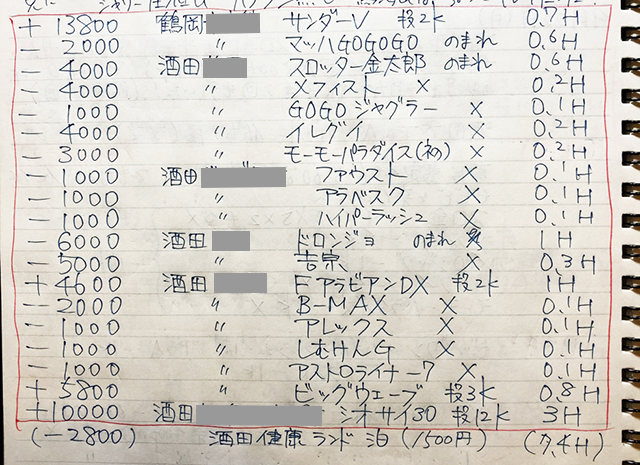 +13800 鶴岡 サンダーV 投2K 0.7H
-2000 〃 マッハGOGOGO のまれ 0.6H
-4000 酒田 スロッター金太郎 のまれ 0.6H
-4000 〃 メフィスト × 0.2H
-1000 〃 GOGOジャグラー × 0.1H
-4000 〃 イレグイ × 0.2H
-3000 〃 モーモーパラダイス(初) × 0.2H
-1000 酒田 ファウスト × 0.1H
-1000 〃 アラベスク × 0.1H
-1000 〃 ハイパーラッシュ × 0.1H
-6000 酒田 ドロンジョ のまれ 1H
-5000 〃 吉宗 × 0.3H
+4600 酒田 FアラビアンDX 投2K 1H
-2000 〃 B-MAX × 0.1H
-1000 〃 アレックス × 0.1H
-1000 〃 しむけんG × 0.1H
-1000 〃 アストロライナー7 × 0.1H
+5800 〃 ビッグウェーブ 投3K 0.8H
+10000 酒田 シオサイ30 投12K 3H
(-2800) 酒田健康ランド 泊(1500円) (9.4H)